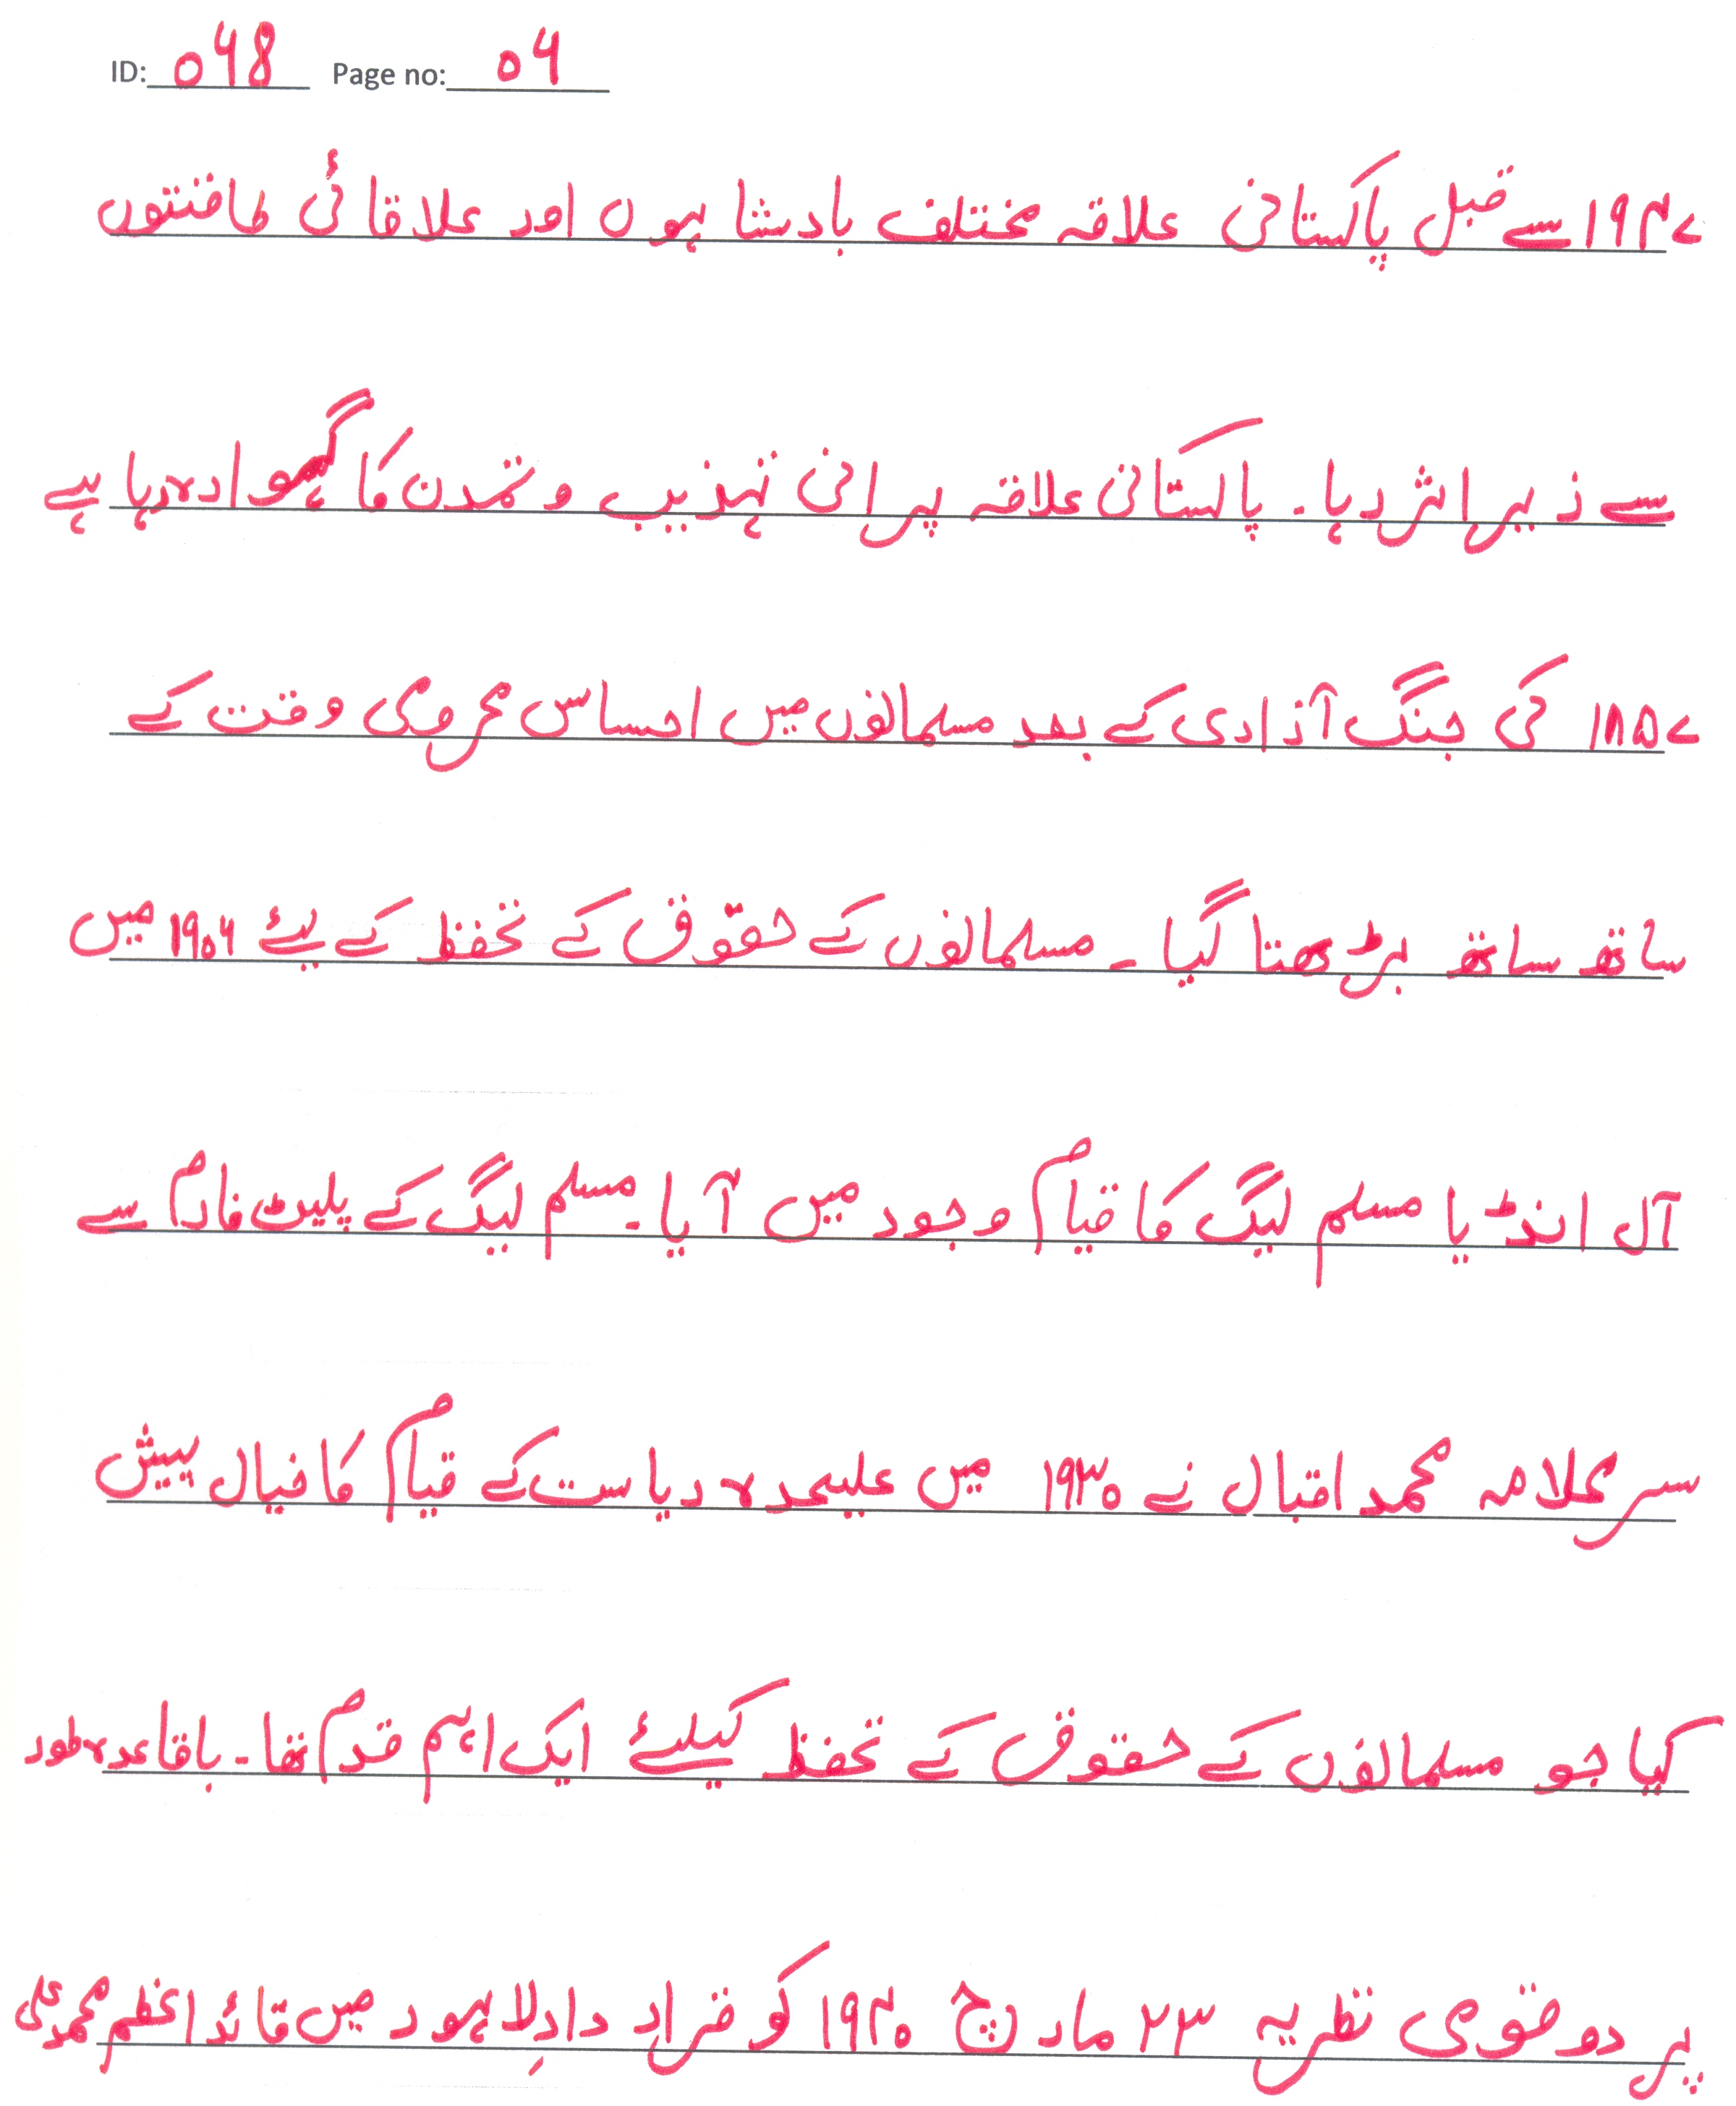 ID: ०48 Page no: ०4
۱۹۴۷ سے قبل پاکستانی علاقہ مختلف بادشاہوں اور علاقائی طاقتوں
سے زیر اثر رہا۔ پاکستانی علاقہ پرانی تہذیب و تمدن کا گہوارہ رہا ہے
۱۸۵۷ کی جنگ آزادی کے بعد مسلمانوں میں احساس محرومی وقت کے
ساتھ ساتھ بڑھتا گیا۔ مسلمانوں کے حقوق کے تحفظ کے لیئے ۱۹۰۶ میں
آل انڈیا مسلم لیگ کا قیام وجود میں آیا۔ مسلم لیگ کے پلیٹ فارم سے
سر علامہ محمد اقبال نے ۱۹۳۰ میں علیحدہ ریاست کے قیام کا خیال پیش
کیا جو مسلمانوں کے حقوق کے تحفظ کیلئے ایک اہم قدم تھا۔ باقاعدہ طور
پر دو قومی نظریہ ۲۳ مارچ ۱۹۴۰ کو قرار دادِ لاہور میں قائد اعظم محمد علی